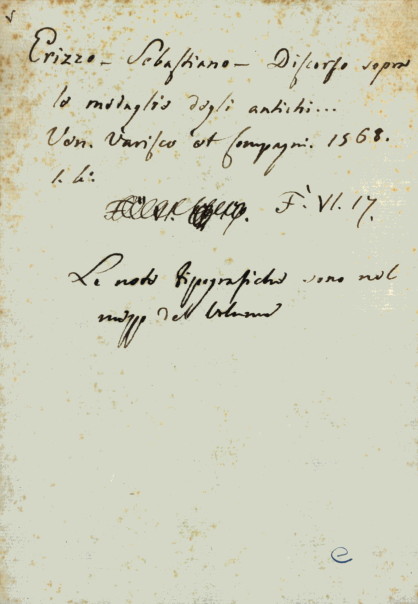 Erizzo - Sebastiano - Discorso sopra
le medaglie degli antichi...
Ven. Varisco et Compagni. 1568.
1. 4°.
F. VI. 17.
Le note tipografiche sono nel
mezzo del Volume
e